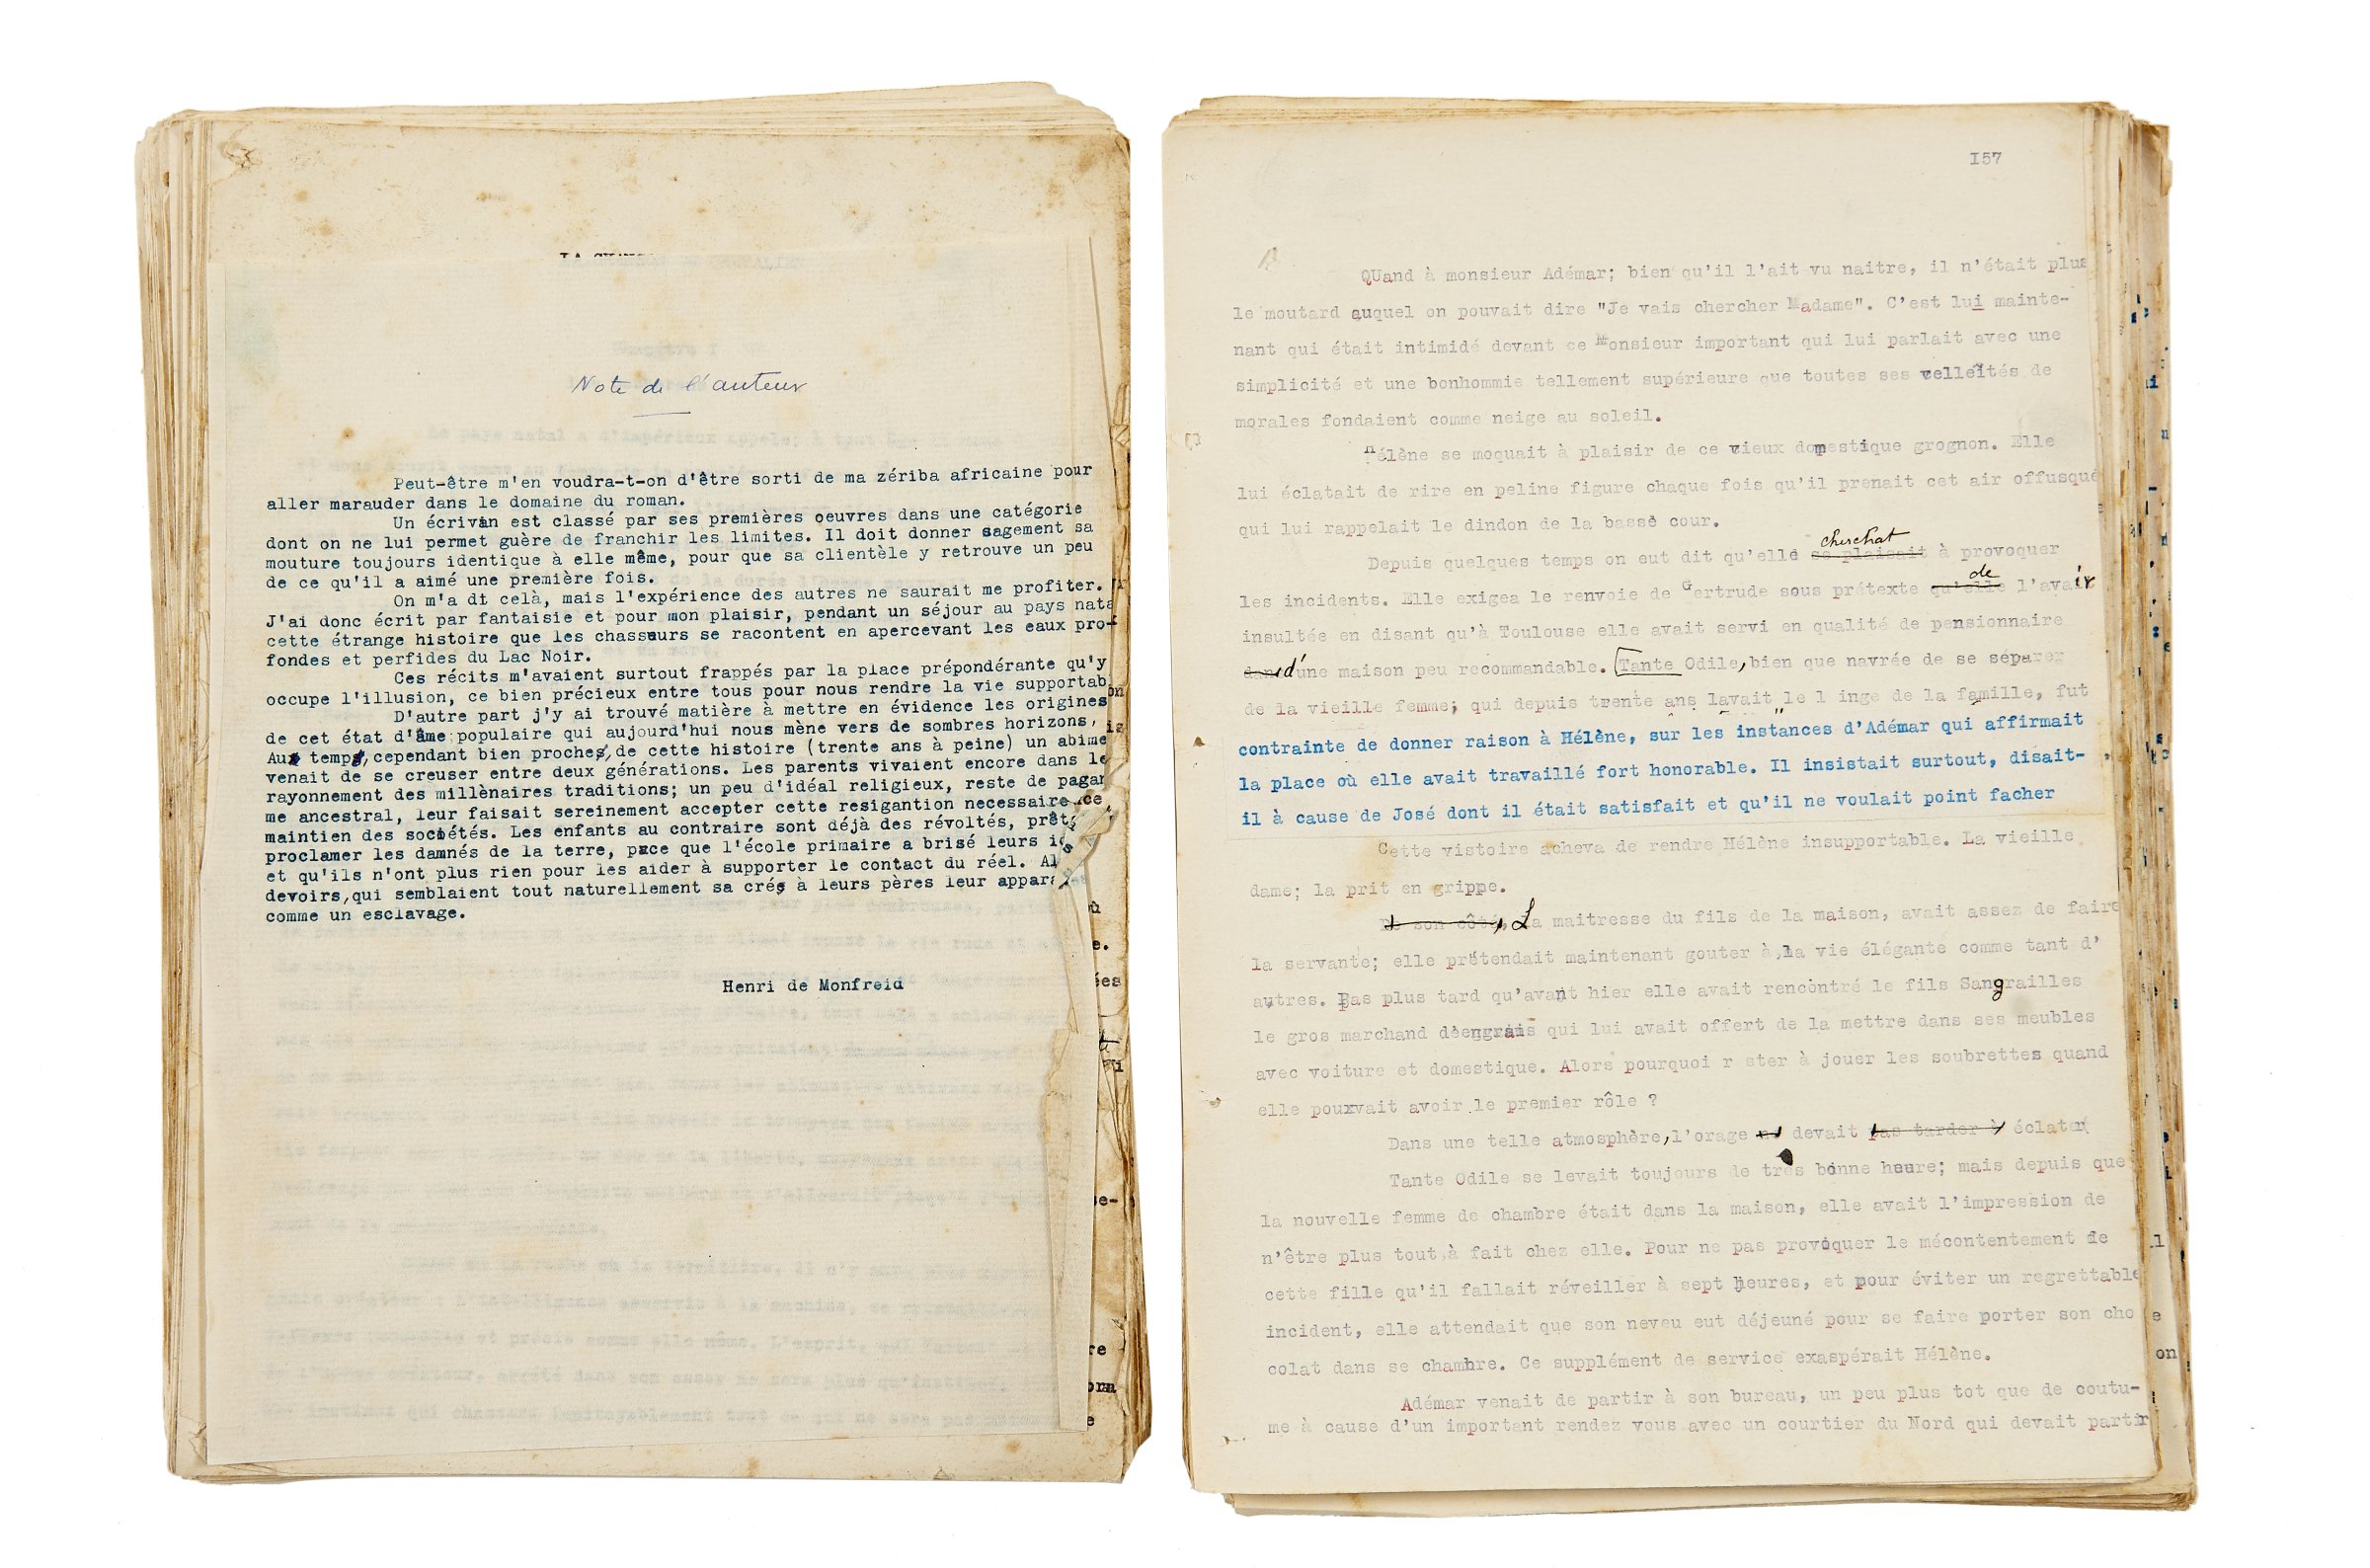 Note de l'auteur
Peut-être m'en voudra-t-on d'être sorti de ma zériba africaine pour
aller marauder dans le domaine du roman.
Un écrivàn est classé par ses premières oeuvres dans une catégorie
dont on ne lui permet guère de franchir les limites. Il doit donner sagement sa
mouture toujours identique à elle même, pour que sa clientèle y retrouve un peu
de ce qu'il a aimé une première fois.
On m'a dt celà, mais l'expérience des autres ne saurait me profiter.
J'ai donc écrit par fantaisie et pour mon plaisir, pendant un séjour au pays nata
cette étrange histoire que les chasseurs se racontent en apercevant les eaux pro-
fondes et perfides du Lac Noir.
Ces récits m'avaient surtout frappés par la place prépondérante qu'y
occupe l'illusion, ce bien précieux entre tous pour nous rendre la vie supportab
D'autre part j'y ai trouvé matière à mettre en évidence les origines
de cet état d'âme populaire qui aujourd'hui nous mène vers de sombres horizons,
Au temps, cependant bien proche, de cette histoire (trente ans à peine) un abime
venait de se creuser entre deux générations. Les parents vivaient encore dans le
rayonnement des millènaires traditions; un peu d'idéal religieux, reste de pagan
me ancestral, leur faisait sereinement accepter cette resigantion necessaire
maintien des sociétés. Les enfants au contraire sont déjà des révoltés, prêt
proclamer les damnés de la terre, pace que l'école primaire a brisé leurs i
et qu'ils n'ont plus rien pour les aider à supporter le contact du réel. Al
devoirs, qui semblaient tout naturellement sa crés à leurs pères leur appara
comme un esclavage.
Henri de Monfreid
157
QUand à monsieur Adémar; bien qu'il l'ait vu naitre, il n'était plus
le moutard auquel on pouvait dire "Je vais chercher Madame". C'est lui mainte-
nant qui était intimidé devant ce Monsieur important qui lui parlait avec une
simplicité et une bonhommie tellement supérieure que toutes ses velleïtés de
morales fondaient comme neige au soleil.
Hélène se moquait à plaisir de ce vieux domestique grognon. Elle
lui éclatait de rire en peline figure chaque fois qu'il prenait cet air offusqué
qui lui rappelait le dindon de la basse cour.
cherchat
Depuis quelques temps on eut dit qu'elle se plaisait à provoquer
de
les incidents. Elle exigea le renvoie de Gertrude sous prétexte qu'elle l'avair
insultée en disant qu'à Toulouse elle avait servi en qualité de pensionnaire
dans d'une maison peu recommandable. Tante Odile, bien que navrée de se séparer
de la vieille femme; qui depuis trente ans lavait le l inge de la famille, fut
contrainte de donner raison à Hélène, sur les instances d'Adémar qui affirmait
la place où elle avait travaillé fort honorable. Il insistait surtout, disait-
il à cause de José dont il était satisfait et qu'il ne voulait point facher
Cette vistoire acheva de rendre Hélène insupportable. La vieille
dame; la prit en grippe.
De son côté, La maitresse du fils de la maison, avait assez de faire
la servante; elle prétendait maintenant gouter à la vie élégante comme tant d'
autres. Pas plus tard qu'avant hier elle avait rencontré le fils Sangrailles
le gros marchand d'engrais qui lui avait offert de la mettre dans ses meubles
avec voiture et domestique. Alors pourquoi r ster à jouer les soubrettes quand
elle pouxvait avoir le premier rôle ?
Dans une telle atmosphère, l'orage ne devait pas tarder à éclater
Tante Odile se levait toujours de très bonne heure; mais depuis que
la nouvelle femme de chambre était dans la maison, elle avait l'impression de
n'être plus tout à fait chez elle. Pour ne pas provoquer le mécontentement de
cette fille qu'il fallait réveiller à sept heures, et pour éviter un regrettable
incident, elle attendait que son neveu eut déjeuné pour se faire porter son cho
colat dans se chambre. Ce supplément de service exaspérait Hélène.
Adémar venait de partir à son bureau, un peu plus tot que de coutu-
me à cause d'un important rendez vous avec un courtier du Nord qui devait partir